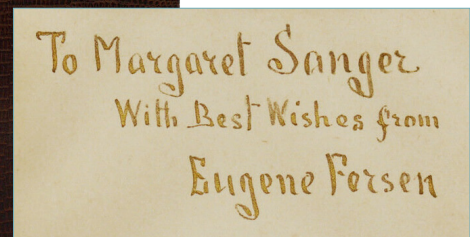 To Margaret Sanger
With Best Wishes from
Eugene Fersen